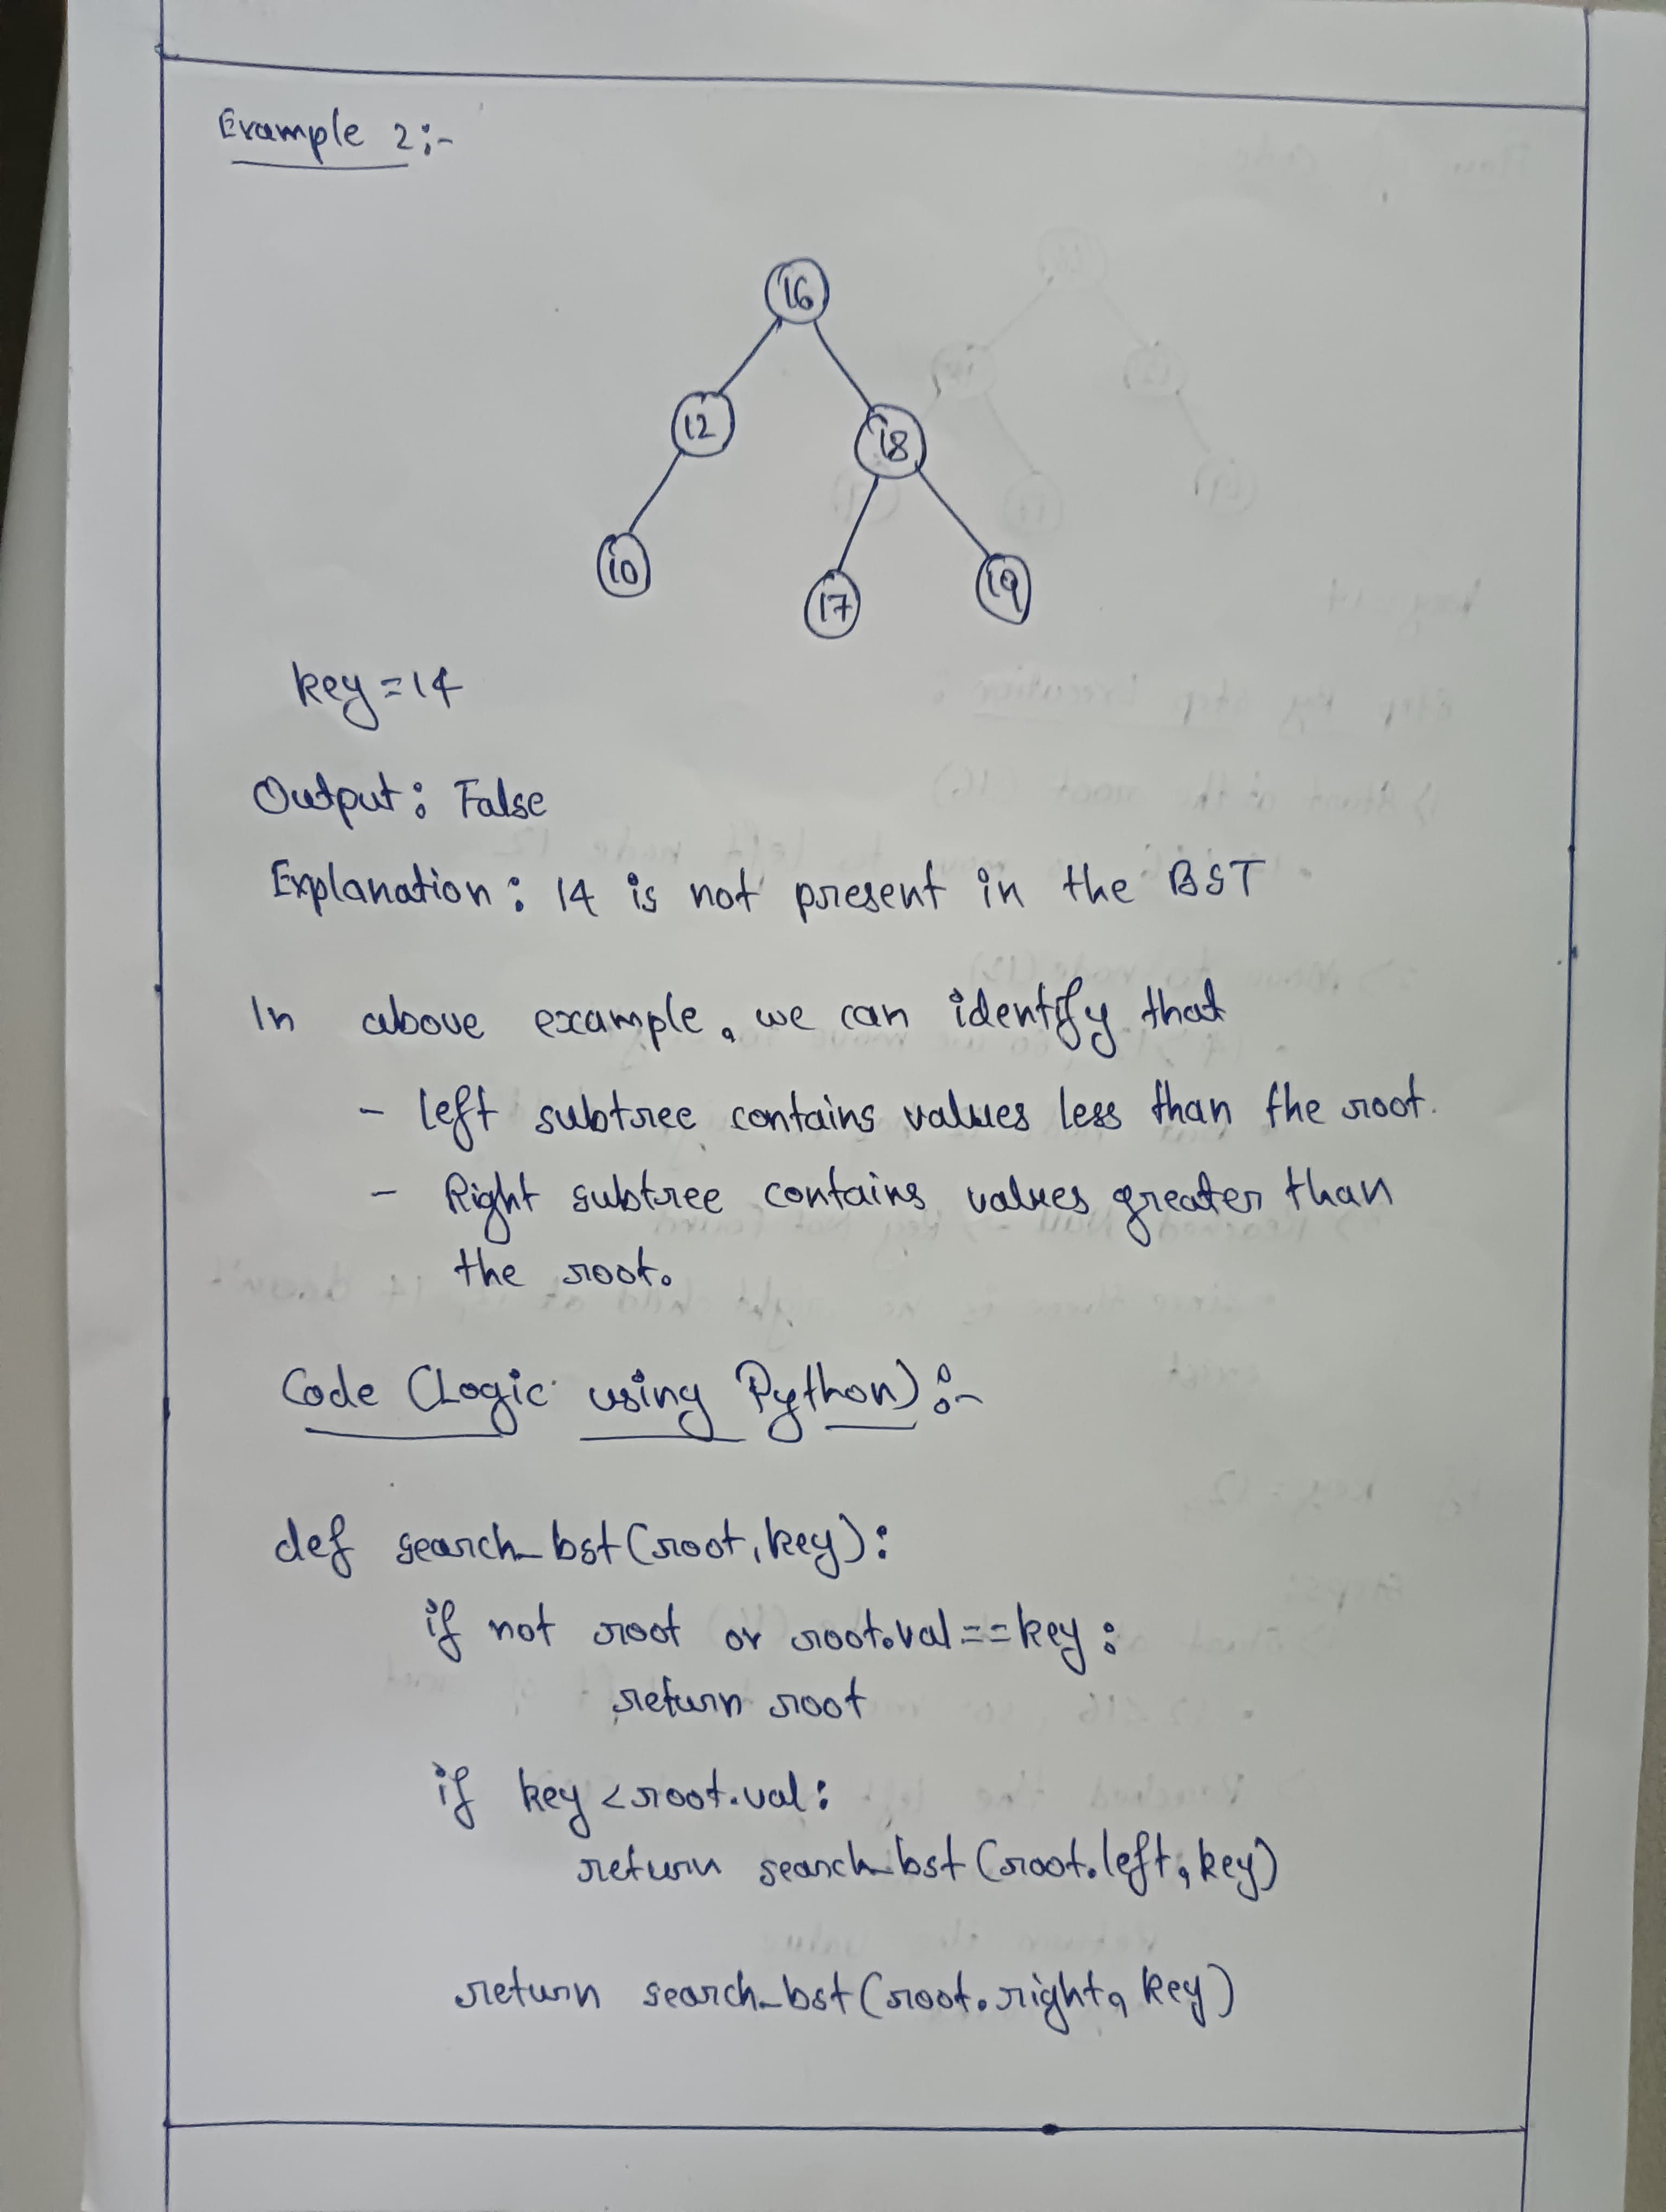 Example 2:-
16
12
18
10
17
19
key=14
Output: False
Explanation: 14 is not present in the BST
In above example, we can identify that
- left subtree contains values less than the root.
- Right subtree contains values greater than
the root.
Code (Logic using Python):-
def search_bst(root,key):
if not root or root.val==key:
return root
if key<root.val:
return search_bst(root.left,key)
return search_bst(root.right,key)